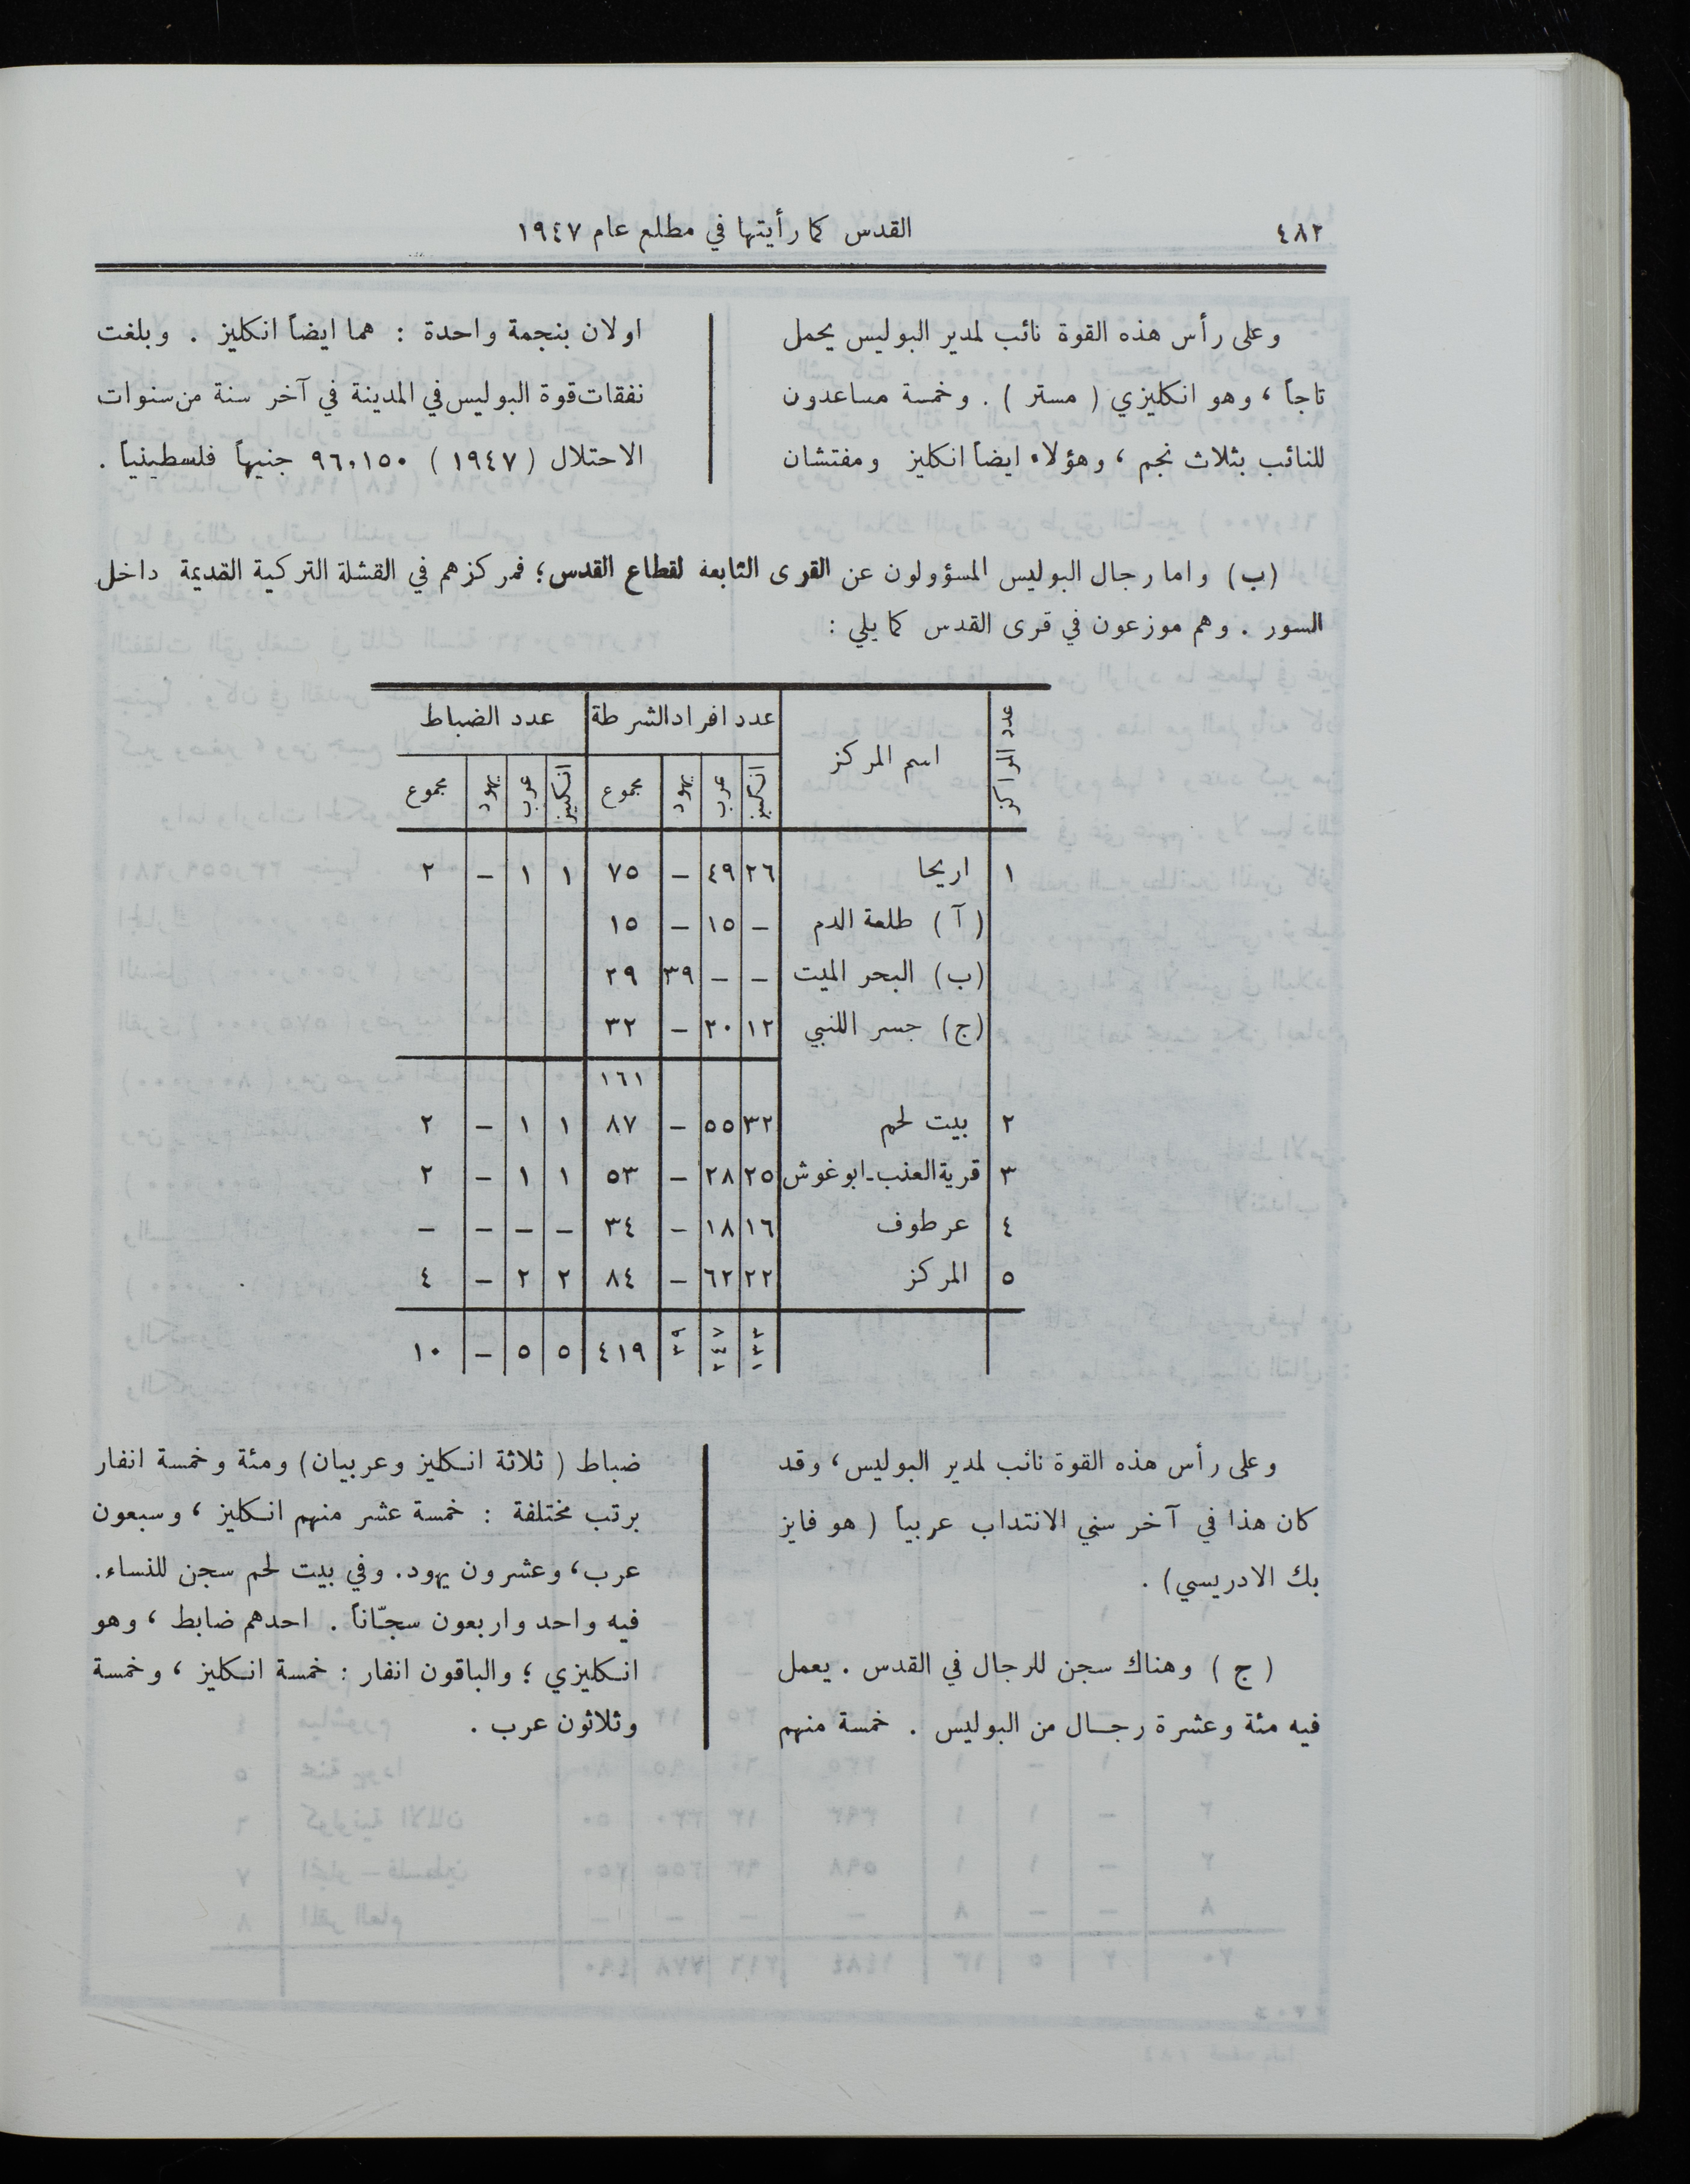 ٤٨٢
القدس كما رأيتها في مطلع عام ١٩٤٧
وعلى رأس هذه القوة نائب لمدير البوليس يحمل
تاجاً ، وهو انكليزي ( مستر ) . وخمسة مساعدون
للنائب بثلاث نجم ، وهؤلاء ايضاً انكليز ومفتشان
اولان بنجمة واحدة : هما ايضاً انكليز . وبلغت
نفقات قوة البوليس في المدينة في آخر سنة من سنوات
الاحتلال (١٩٤٧) ٩٦،١٥٠ جنيهاً فلسطينياً .
(ب) واما رجال البوليس المسؤولون عن القرى التابعة لقطاع القدس؛ فمركزهم في القشلة التركية القديمة داخل
السور . وهم موزعون في قرى القدس كما يلي :
عدد المراكز اسم المركز عدد افراد الشرطة عدد الضباط
انكليز عرب يهود مجموع انكليز عرب يهود مجموع
١ اريحا ٢٦ ٤٩ – ٧٥ ١ ١ – ٢
(آ) طلعة الدم – ١٥ – ١٥
(ب) البحر الميت – – ٣٩ ٢٩
(ج) جسر اللنبي ١٢ ٢٠ – ٣٢
١٦١
٢ بيت لحم ٣٢ ٥٥ – ٨٧ ١ ١ – ٢
٣ قرية العنب-ابو غوش ٢٥ ٢٨ – ٥٣ ١ ١ – ٢
٤ عرطوف ١٦ ١٨ – ٣٤ – – – –
٥ المركز ٢٢ ٦٢ – ٨٤ ٢ ٢ – ٤
٤١٩ ٥ ٥ – ١٠
وعلى رأس هذه القوة نائب لمدير البوليس، وقد
كان هذا في آخر سني الانتداب عربياً ( هو فايز
بك الادريسي) .
( ج ) وهناك سجن للرجال في القدس . يعمل
فيه مئة وعشرة رجال من البوليس . خمسة منهم
ضباط ( ثلاثة انكليز وعربيان) ومئة وخمسة انفار
برتب مختلفة : خمسة عشر منهم انكليز ، وسبعون
عرب، وعشرون يهود. وفي بيت لحم سجن للنساء.
فيه واحد واربعون سجّاناً . احدهم ضابط ، وهو
انكليزي ؛ والباقون انفار : خمسة انكليز ، وخمسة
وثلاثون عرب .